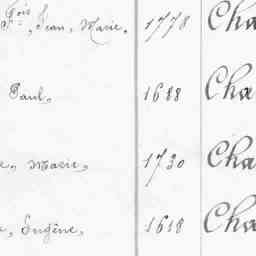 Fois, Jean, Marie, 1778 Cha
Paul, 1688 Cha
e, Marie, 1730 Cha
e, Eugène, 1618 Cha